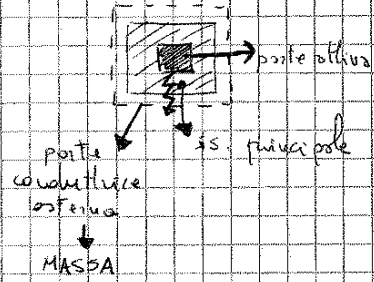 parte attiva
is. principale
parte
conduttrice
esterna
MASSA